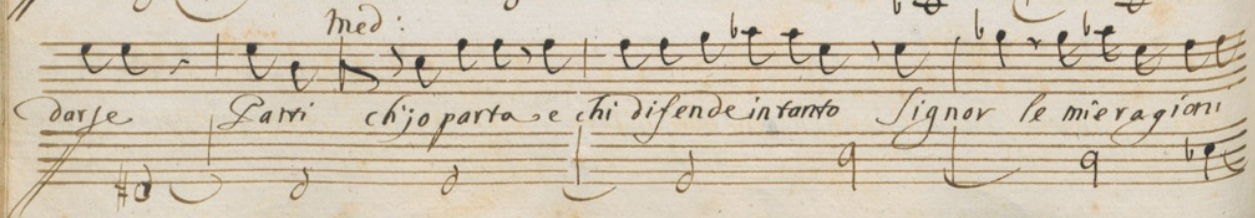 med:
darse Parti ch'jo parta e chi difende intanto Signor le mie ragioni